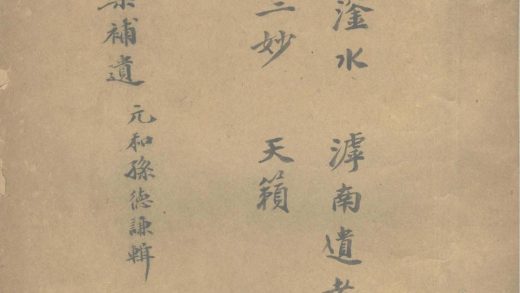 滏水　滹南遺老
二妙　天籟
集補遺　元和孫德謙輯